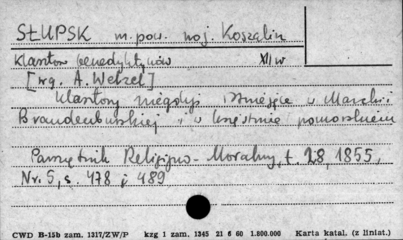 SŁUPSK m. pow. woj. Koszalin
Klasztor benedyktynów XII w
[wg. A. Wetzel]
Klasztory niegdyś istniejące w Marchii
Brandenburskiej i w księstwie pomorskiem
Pamiętnik Religijno-Moralny, t. 28, 1855,
Nr. 5, s. 478 i 489
CWD B-15b zam. 1317/ZW/P kzg 1 zam. 1345 21 6 60 1.800.000 Karta katal. (z liniat.)